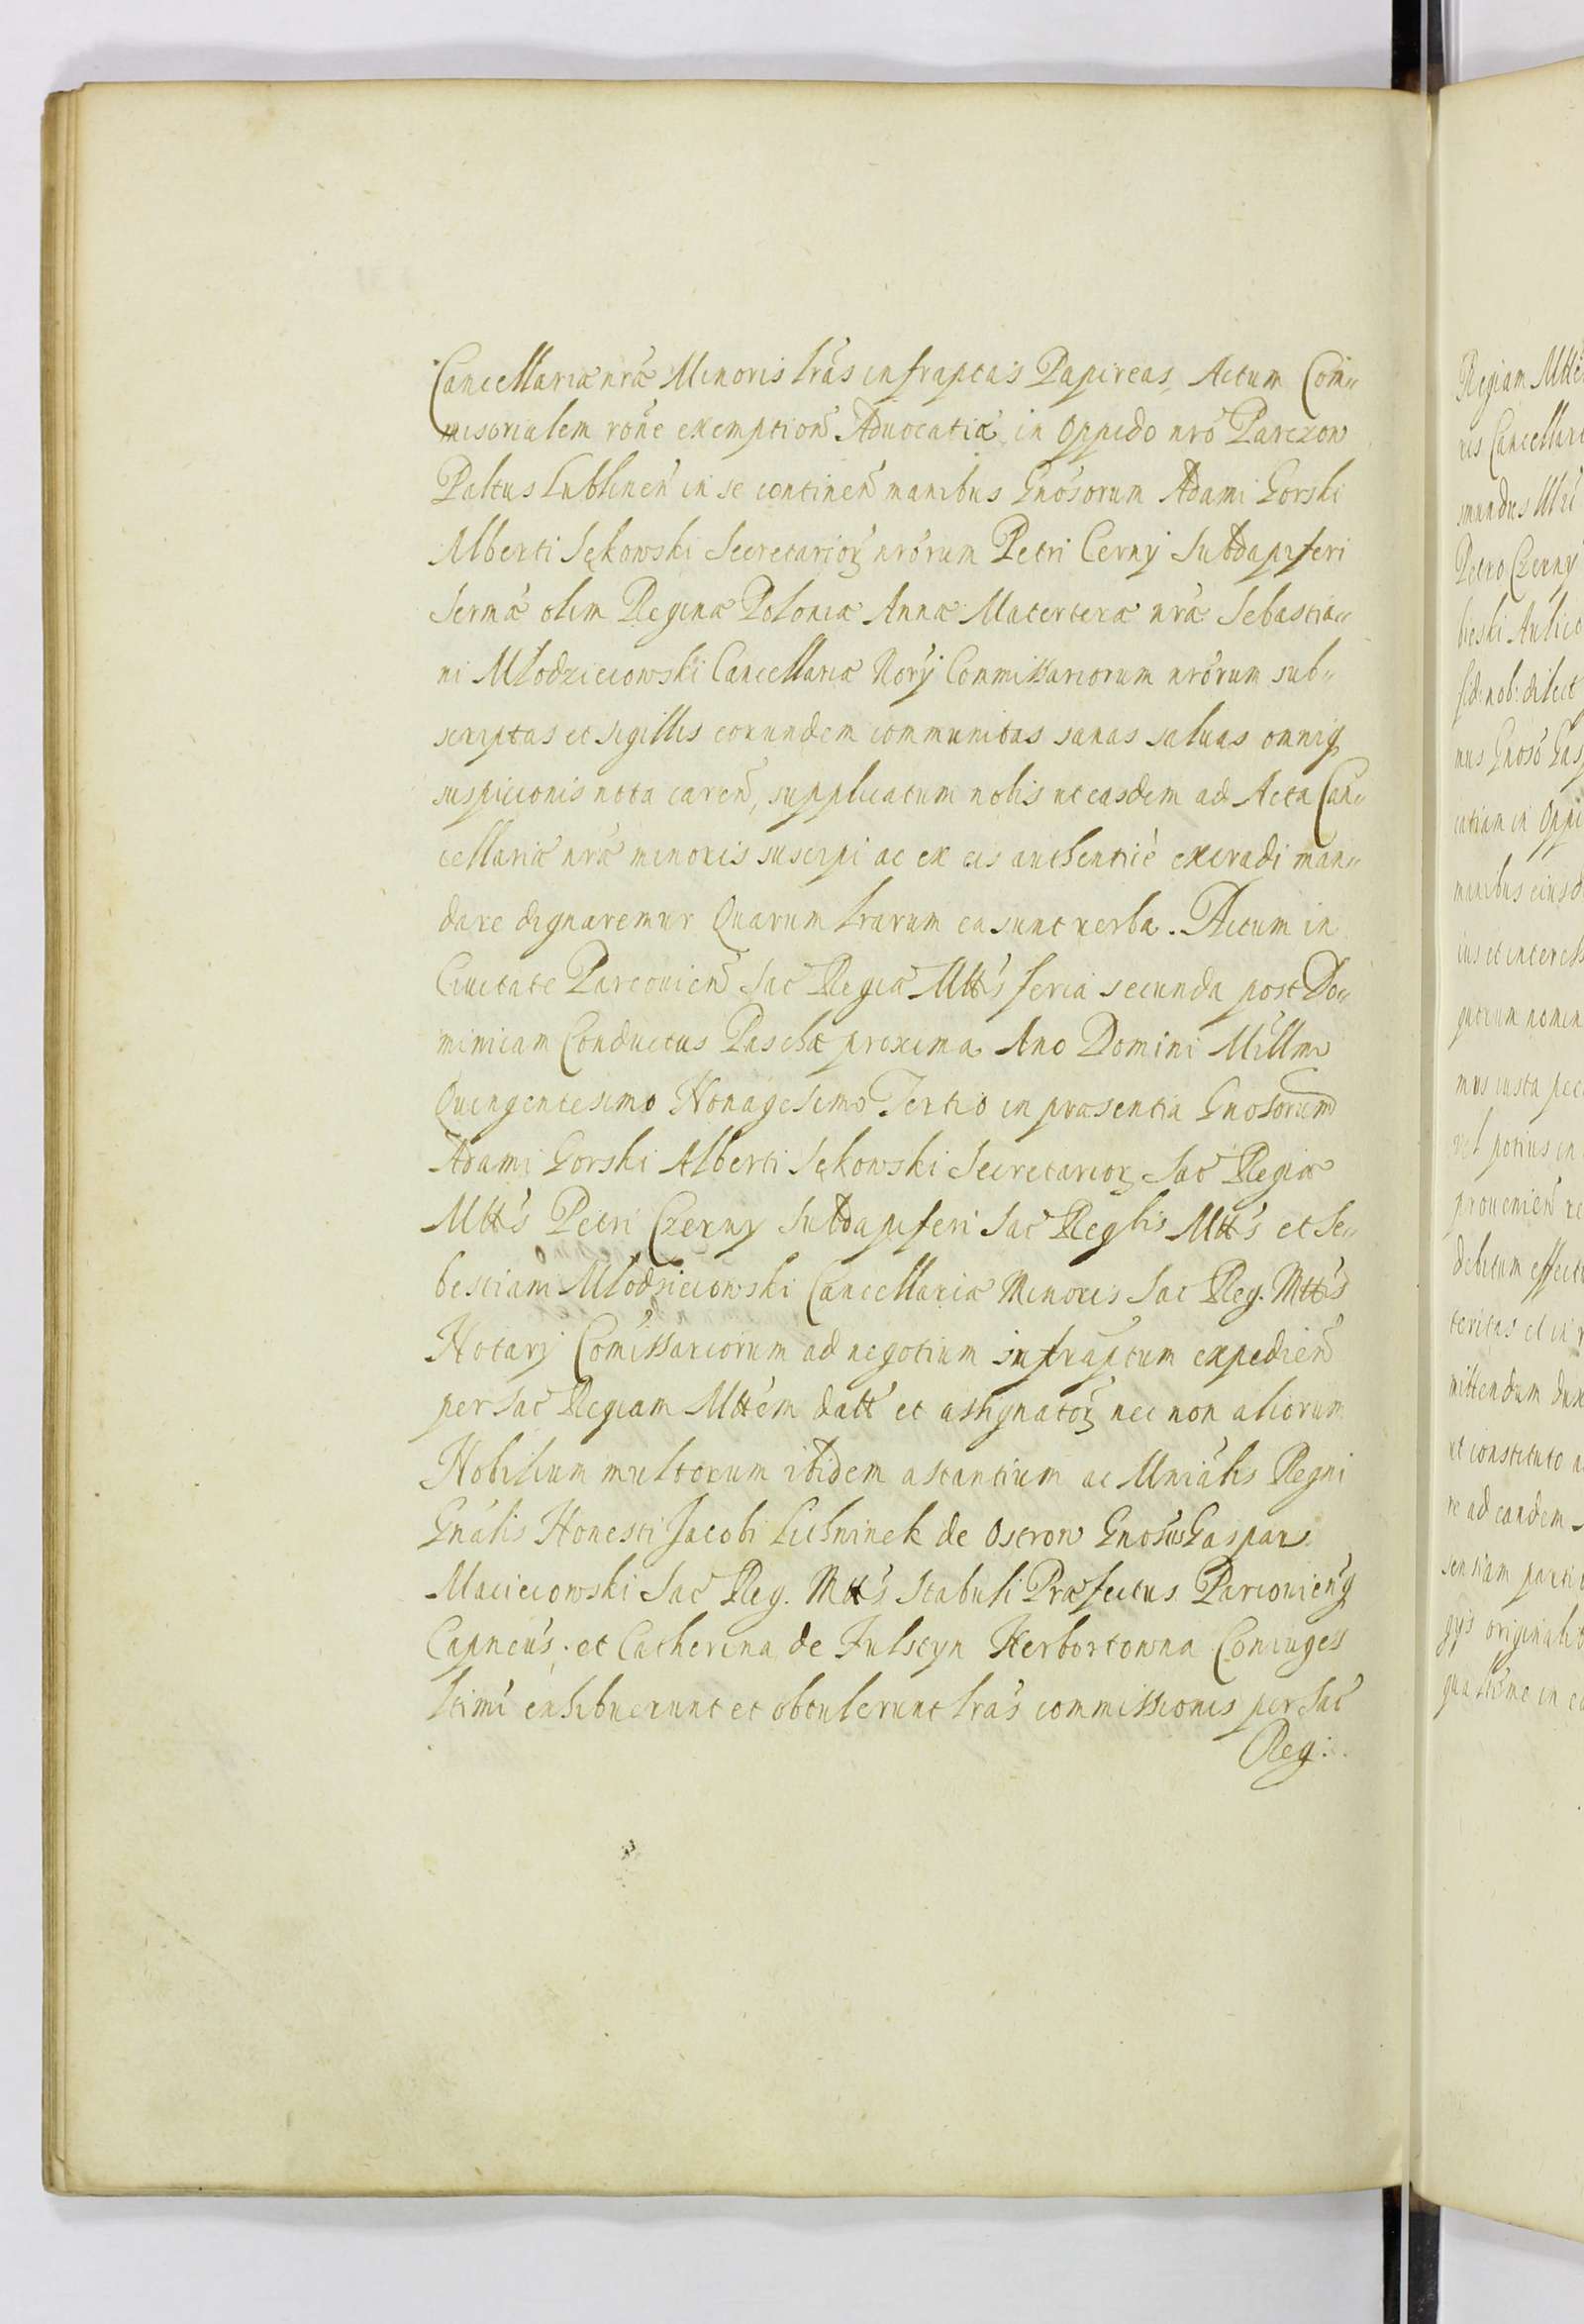 Cancellariæ nræ Minoris lras infraptas Papireas, Actum Com„
misorialem rone exemption Aduocatiæ in Oppido nro Parczow
Paltus Lublinen in se continen manibus Gnosorum Adami Gorski
Alberti Sękowski Secretarioꝝ nrorum Petri Cerny Subdapiferi
Sermæ olim Reginæ Poloniæ Annæ Materteræ nræ Sebastia„
ni Młodzieiowski Cancellariæ Norÿ Commissariorum nrorum sub„
scriptas et sigillis eorundem communitas sanas saluas omniq
suspicionis nota caren, supplicatum nobis ut easdem ad Acta Can„
cellariæ nræ minoris suscipi ac ex eis authenticè extradi man„
dare dignaremur Quarum lrarum ea sunt verba. Actum in
Ciuitate Parcouien Sac Regiæ Mtt's feria secunda post Do„
minicam Conductus Paschæ proxima Ano Domini Millmo
Quingentesimo Nonagesimo Tertio in præsentia Gnosorum
Adami Gorski Alberti Sękowski Secretarioꝝ Sac Regiæ
Mtt's Petri Czerny Subdapiferi Sac Reglis Mtt's et Se„
bestiani Młodzieiowski Cancellariæ Minoris Sac Reg. Mtt's
Notarÿ Comissariorum ad negotium infraptum expedien
per Sac Regiam Mttem datt et assignatoꝝ nec non aliorum
Nobilium multorum ibidem astantium ac Mnialis Regni
Gnalis Honesti Jacobi Lichninek de Ostrow Gnosus Gaspar
Macieiowski Sac Reg. Mtt's Stabuli Præfectus Parcouienq
Capneus, et Catherina de Fulstyn Herbortowna Coniuges
ltimi exhibuerunt et obtulerunt lras commissionis per Sac
Reg: